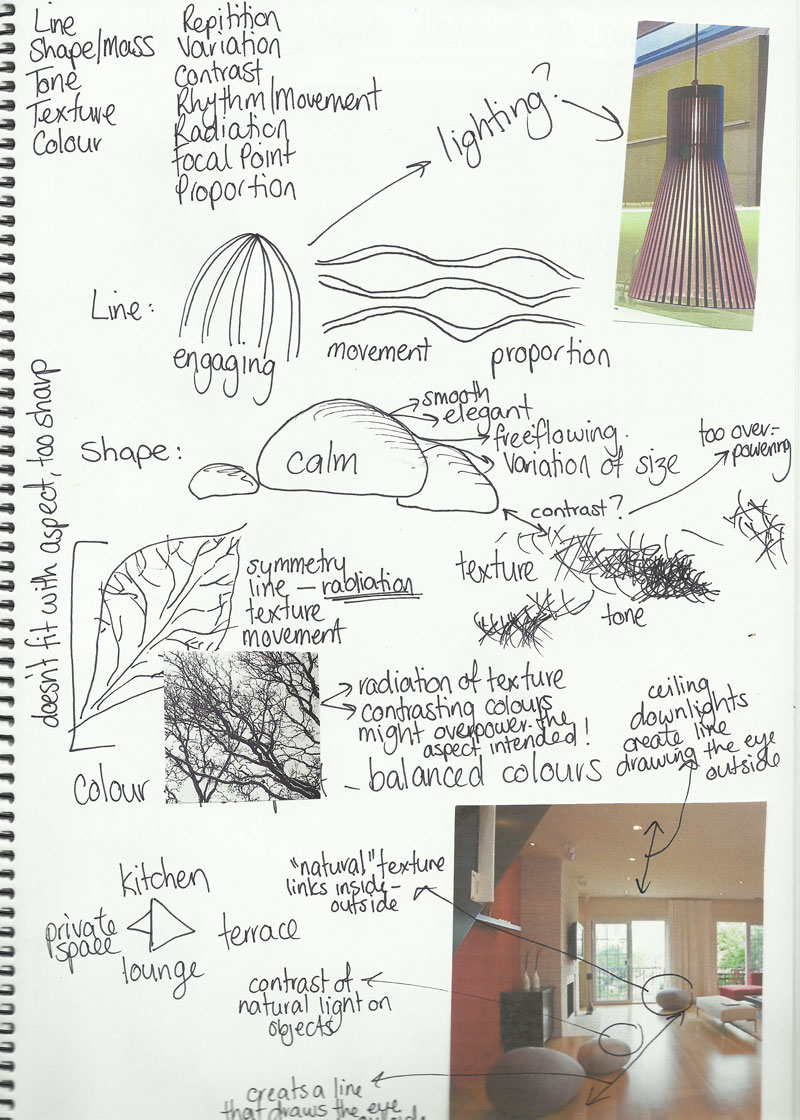 Line
Shape/Mass
Tone
Texture
Colour
Repitition
Variation
Contrast
Rhythm/Movement
Radiation
Focal Point
Proportion
lighting?
Line:
engaging
movement
proportion
Shape:
calm
smooth
elegant
freeflowing.
Variation of size
contrast?
too over-
powering
texture
tone
doesn't fit with aspect, too sharp
symmetry
line - radiation
texture
movement
radiation of texture
contrasting colours
might overpower the
aspect intended!
Colour
- balanced colours
ceiling
downlights
create line
drawing the eye
outside
kitchen
private
space
terrace
lounge
"natural" texture
links inside-
outside
contrast of
natural light on
objects
creats a line
that draws the eye
outside